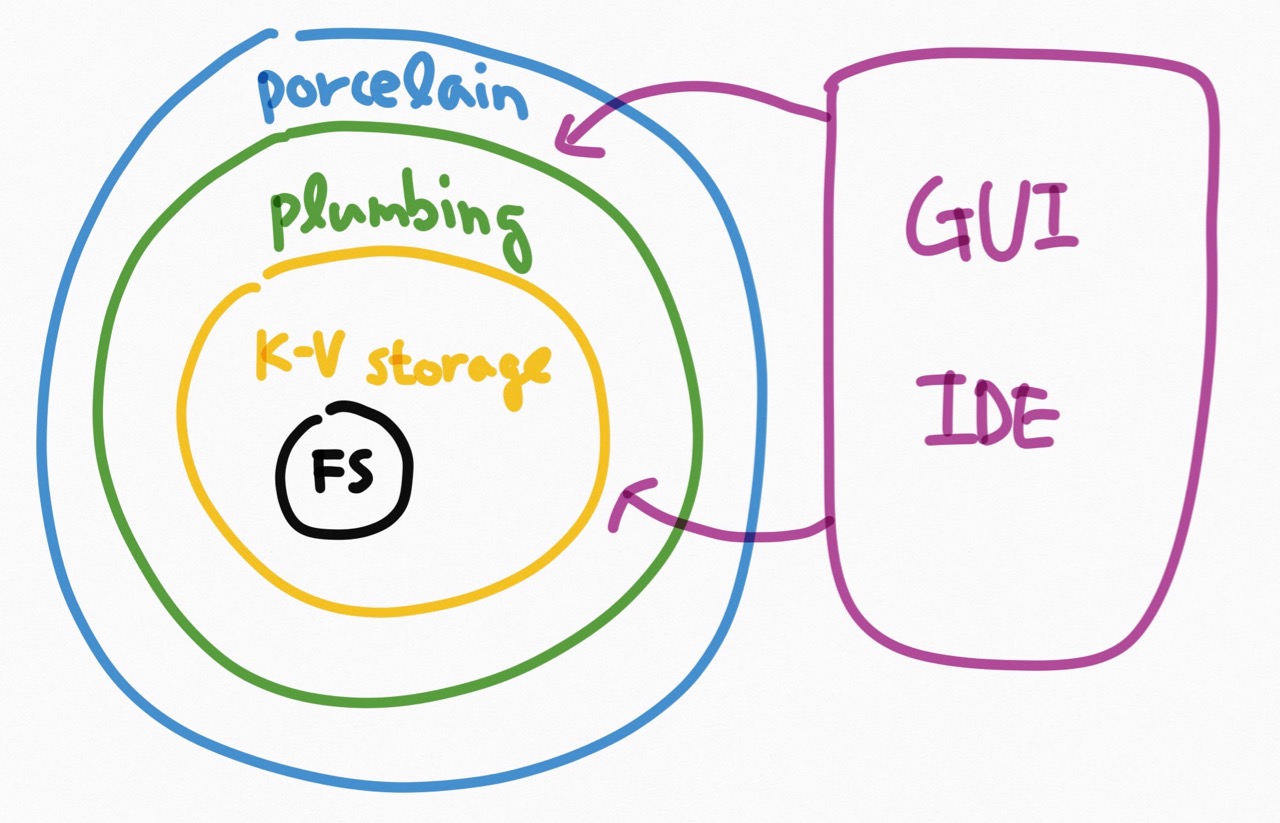 porcelain
plumbing
K-V storage
FS
GUI
IDE